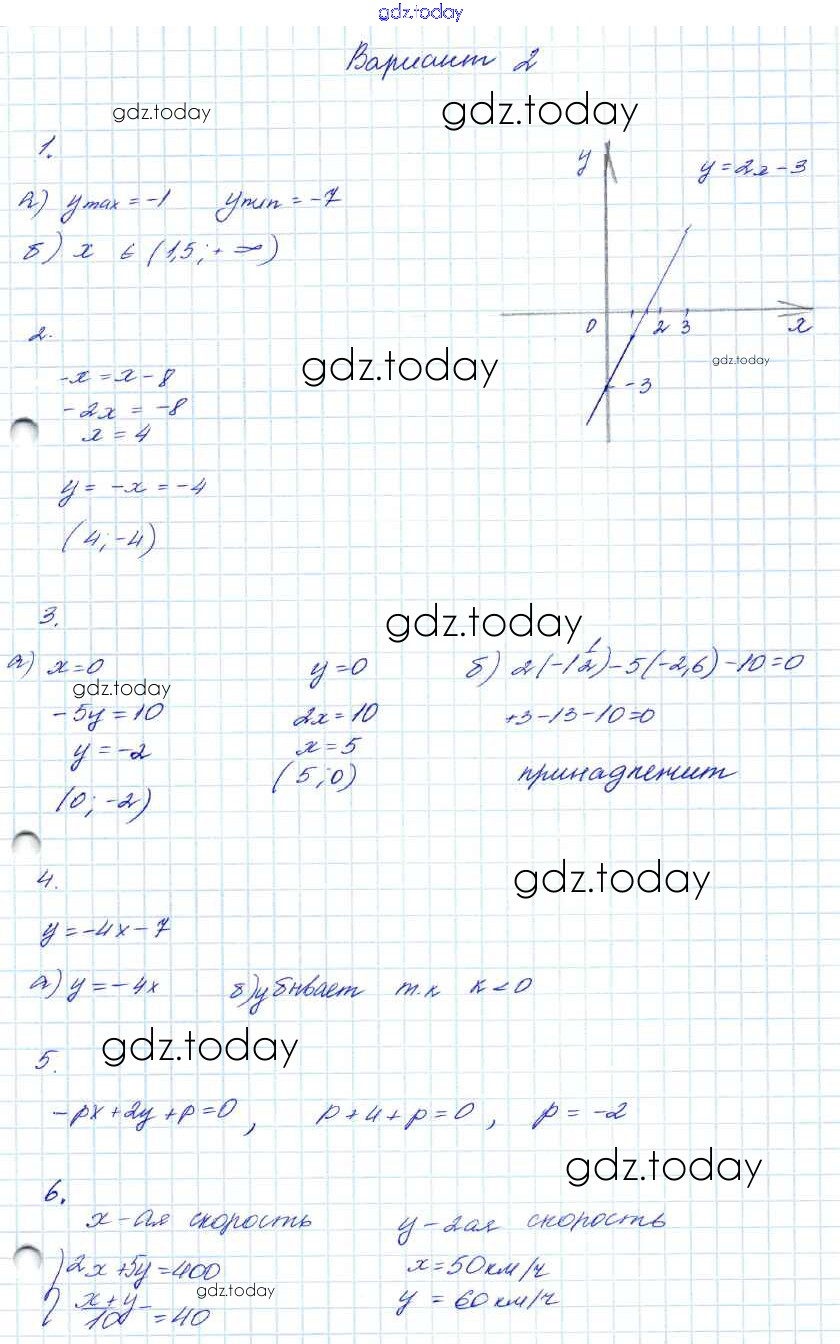 gdz.today
Вариант 2
gdz.today
gdz.today
1.
а) y max = -1 y min = -7
б) x ∈ (1,5; +∞)
y
y = 2x - 3
0 2 3 x
-3
gdz.today
2.
gdz.today
-x = x - 8
-2x = -8
x = 4
y = -x = -4
(4; -4)
3.
gdz.today
а) x = 0 y = 0 б) 2(-1 1/2) - 5(-2,6) - 10 = 0
gdz.today
-5y = 10 2x = 10 +3 - 13 - 10 = 0
y = -2 x = 5
(0; -2) (5; 0) принадлежит
4.
gdz.today
y = -4x - 7
а) y = -4x б) убывает т.к k < 0
5.
gdz.today
-px + 2y + p = 0, p + 4 + p = 0, p = -2
gdz.today
6.
x - ая скорость y - 2ая скорость
2x + 5y = 400 x = 50 км/ч
gdz.today
x + y / 10 = 40 y = 60 км/ч